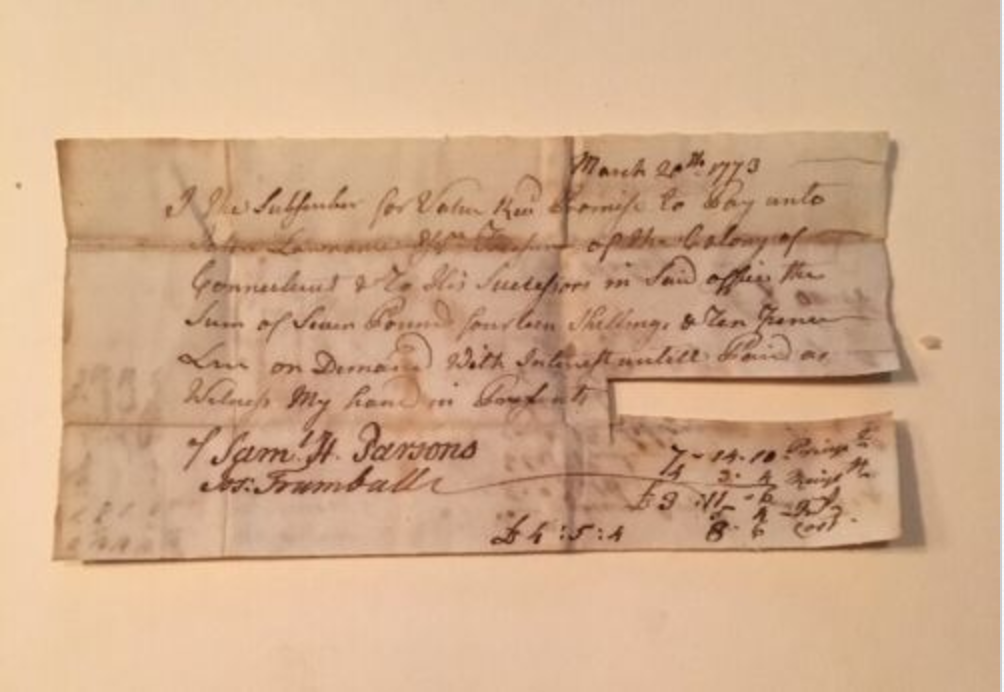 March 20th 1773
I the Subscriber for Value Recd Promise to Pay unto
John Lawrance Esqr of the Colony of
Connecticut & To His Successors in Said office the
Sum of Seven Pound fourteen Shillings & Ten Pence
on Demand With Interest untill Paid as
Witness My hand in Presents
Saml H. Parsons
Jos: Trumball
7 - 14 - 10
4 3 - 4
£3 : 11 - 6
5 4
£4 : 5 : 4 8 - 6 Cost